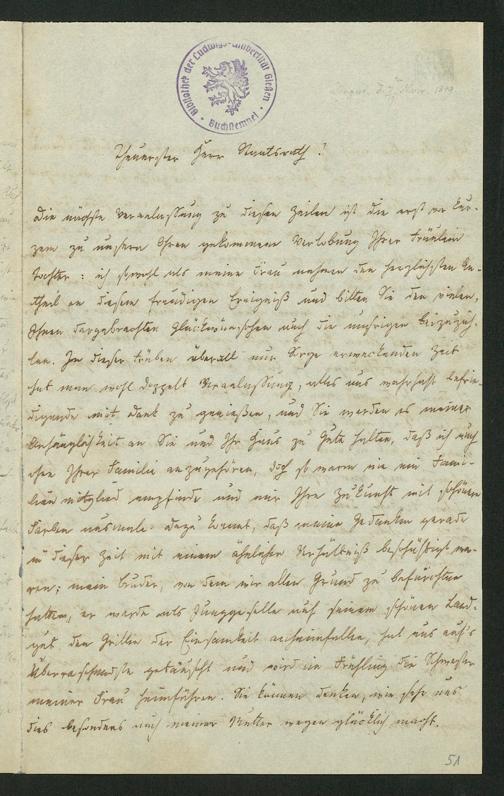 Bibliothek der Ludwigs-Universität Gießen
Buchstempel
Theuerster Herr Staatsrath!
Die nächste Veranlassung zu diesen Zeilen ist die erst vor Kur-
zem zu unsern Ohren gekommene Verlobung Ihrer Fräulein
Tochter: ich sowohl als meine Frau nehmen den herzlichsten An-
theil an diesem freudigen Ereigniß und bitten Sie den vielen,
Ihnen dargebrachten Glückwünschen auch die unsrigen beizuzäh-
len. In dieser trüben überall nur Sorge erweckenden Zeit
hat man wohl doppelt Veranlassung, alles uns wahrhaft befrie-
digende mit Dank zu genießen, und Sie werden es meiner
Anhänglichkeit an Sie und Ihr Haus zu Gute halten, daß ich auch
ohne Ihrer Familie anzugehören, doch so warm wie ein Fami-
lienmitglied empfinde und mir Ihre Zukunft mit schönen
Farben ausmale. Dazu kommt, daß meine Gedanken gerade
in dieser Zeit mit einem ähnlichen Verhältniß beschäftigt wa-
ren; mein Bruder, von dem wir allen Grund zu befürchten
hatten, er werde als Junggeselle auf seinem schönen Land-
gut den Grillen der Einsamkeit anheimfallen, hat uns auf's
Überraschendste getäuscht und wird im Frühling die Schwester
meiner Frau heimführen. Sie können denken, wie sehr uns
dies besonders auch meiner Mutter wegen glücklich macht.
51